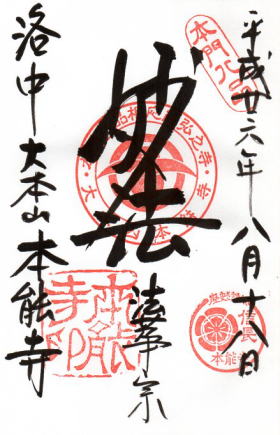 平成廿六年八月十八日
本門八品
妙法
法華宗
洛中 大本山 本能寺
本能寺印
信長
本能